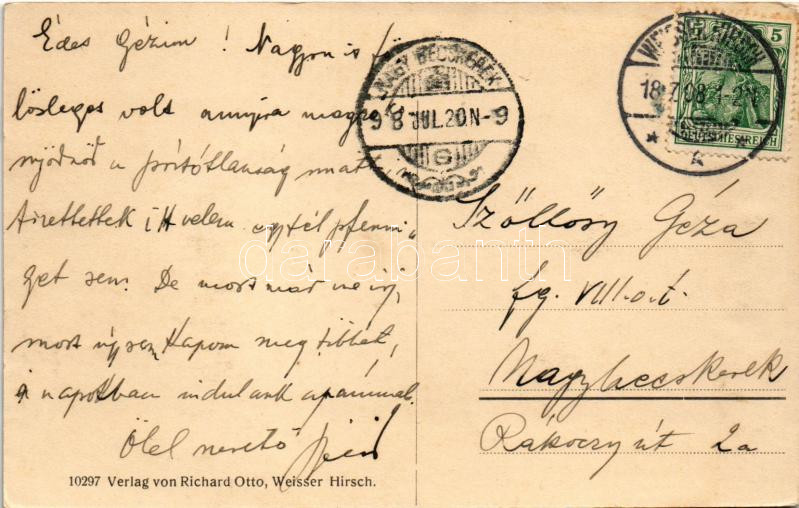 Édes Gézim! Nagyon is fö
lösleges volt annyira magya
a portótlanság miatt
fizettettek itt velem egy fél pfenni„
get sem. De most már ne irj,
most úgysem kapom meg többet,
a napokban indulunk apámmal.
Ölel szerető
10297 Verlag von Richard Otto, Weisser Hirsch.
NAGY BECSKEREK
98 JUL. 20 N-9
G
WEISSER HIRSCH
18.7.08. 1-2N
5
DEUTSCHES REICH
Szöllősy Géza
fg. VIII. o. t.
Nagybecskerek
Rákóczy út 2a
darabanth.com